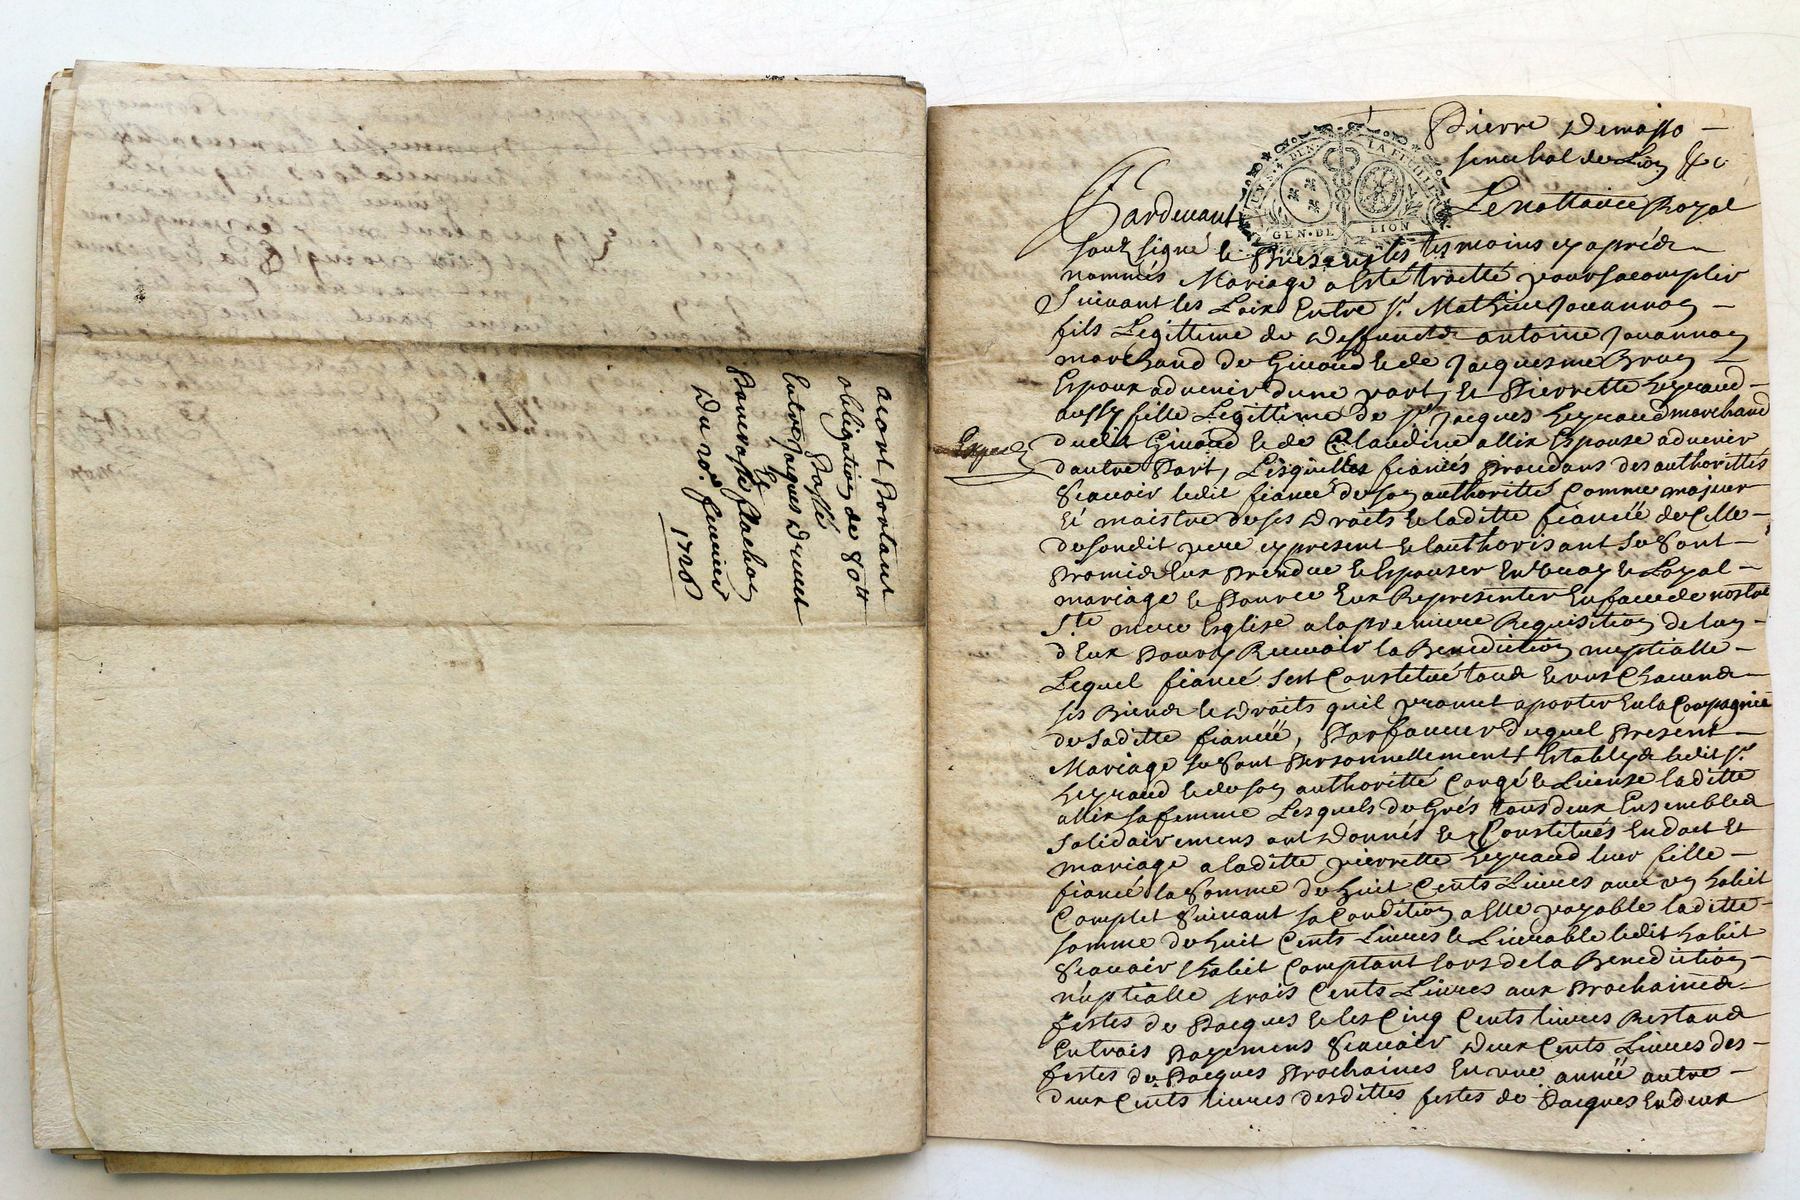 acort Portant
obligation de 80tt
Passé
Entre Jacques Drevet
Et
Bonnaventure flachon
Du 20e. feuvrier
1726
Pierre Demasso
senechal de Lion &c
Pardevant Le nottaire Royal
GEN·DE LION
souz signé & Presents les tesmoins cy aprés
nommés Mariage a Esté traitté pour sacomplir
Suivant les Loix Entre Sr. Mathieu Jouannon
fils Legittime de deffuncts antoine Jouannon
marchand de Givord & de Jacquesme Brun
Espoux advenir dune part, & Pierrette Heyraud
aussy fille Legittime de Sr. Jacques Heyraud marchand
dudit Givord & de Claudine allix Espouse advenir
Exped
dautre Part, Lesquelles fiancés Procedans des authorittés
Scavoir ledit fiancé de son authoritté Comme majeur
Et maistre de ses Droits & laditte fiancée de Celle
de sondit pere cy present & lauthorisant se sont
Promis Eux Prendre & Espouser En vray & Loyal
mariage & Pource Eux Representer En face de nostre
Ste. mere Esglise a la premiere Requisition de lun
dEux Pour y Recevoir la Benediction nuptialle
Lequel fiancé sest Constitué tous & uns Chacuns
ses Biens & Droits quil promet aporter En la Compagnie
de saditte fiancée, Par faveur duquel Present
Mariage se sont Personnellement Establys ledit Sr.
Heyraud & de son authoritté Congé & License laditte
allix sa femme Lesquels de Grés tous deux Ensembles
Solidairement ont Donnés & Constitués En dot Et
mariage a laditte pierrette Heyraud leur fille
fiancé la Somme de huit Cents Livres avec un habit
Complet Suivant sa Condition a Elle payable laditte
somme de huit Cents Livres & Livrable ledit habit
Scavoir lhabit Comptant lors de la Benediction
nuptialle trois Cents Livres aux Prochaines
festes de Pacques & les Cinq Cents livres Restans
En trois Payemens Scavoir Deux Cents Livres des
festes de Pacques Prochaines En une année autre
deux Cents livres desdittes festes de Pacques En deux